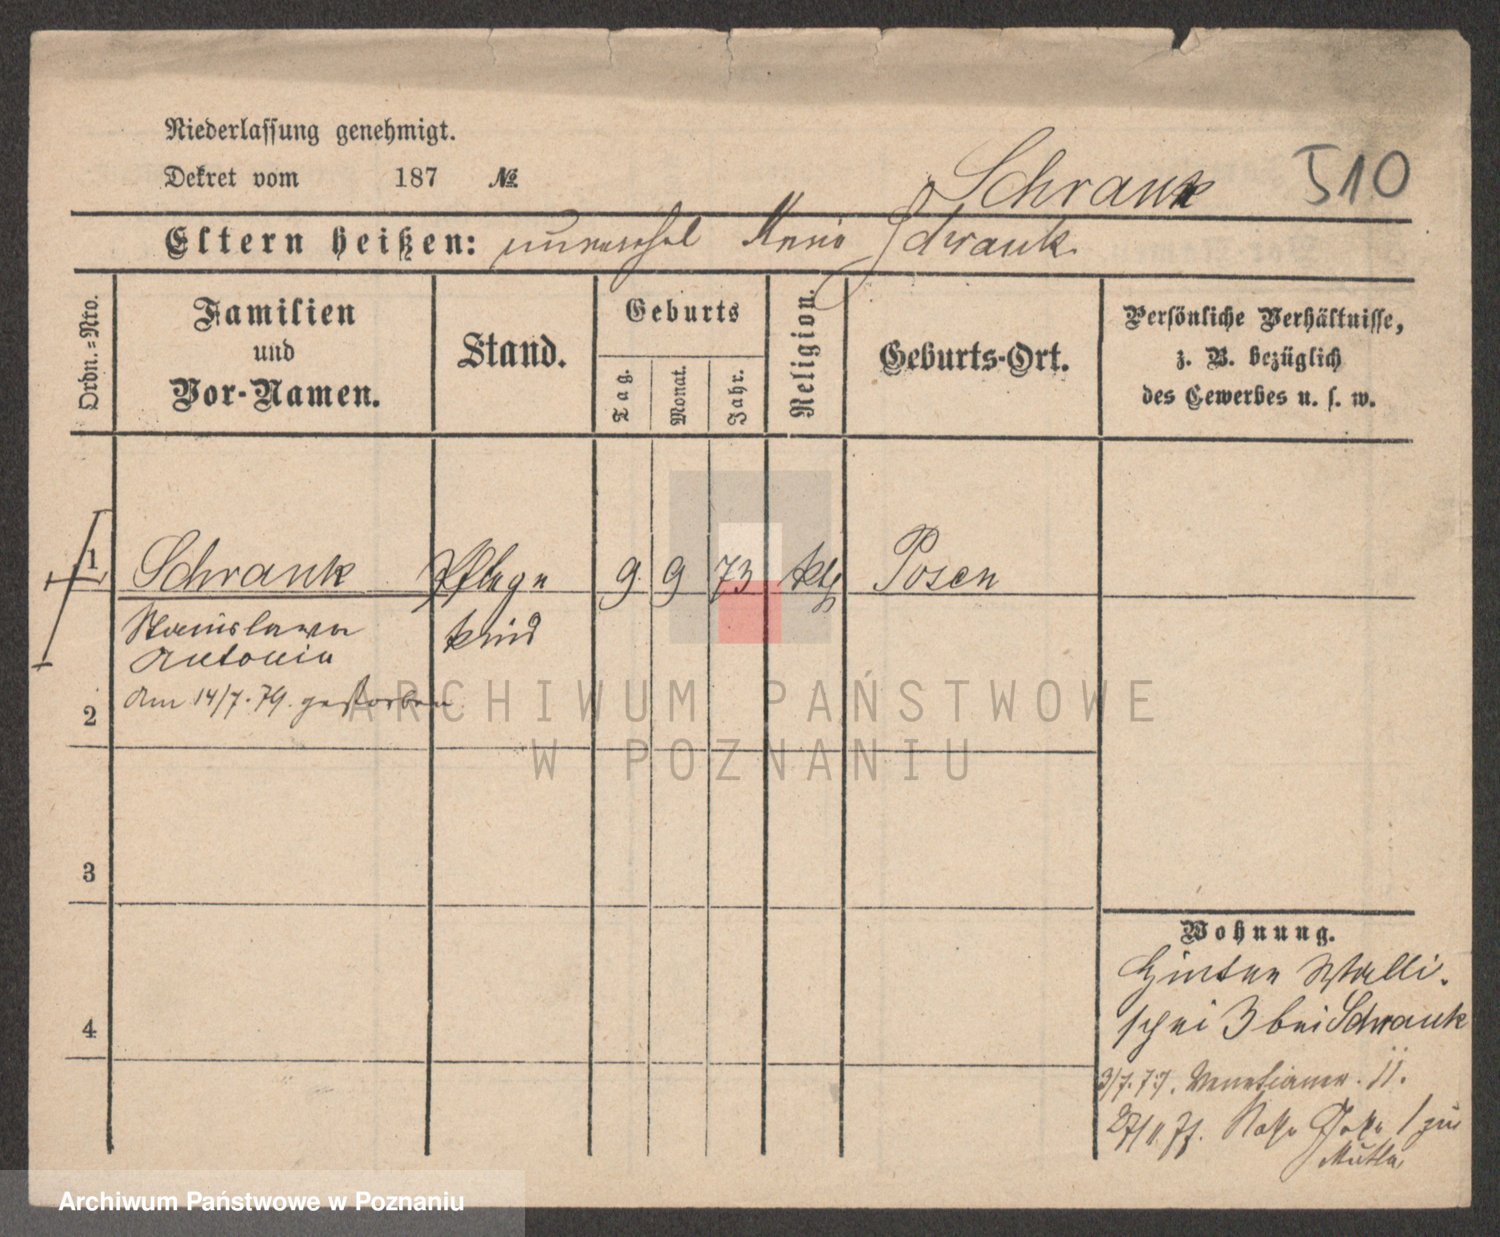 Niederlassung genehmigt.
Dekret vom 187 №
Schrank 510
Eltern heißen: unverehel Marie Schrank
Ordn.=Nro.
Familien
und
Vor-Namen.
Stand.
Geburts
Tag.
Monat.
Jahr.
Religion.
Geburts-Ort.
Persönliche Verhältnisse,
z. B. bezüglich
des Gewerbes u. s. w.
1 Schrank Pflege 9 9 73 kth Posen
Stanislawa kind
Antonia
2 am 14/7. 79. gestorben
3
4
Wohnung.
Hinter Walli-
schei 3 bei Schrank
3/7. 77. Venetianer. 11.
27/11. 77. 1 zur
Mutter
ARCHIWUM PAŃSTWOWE
W POZNANIU
Archiwum Państwowe w Poznaniu